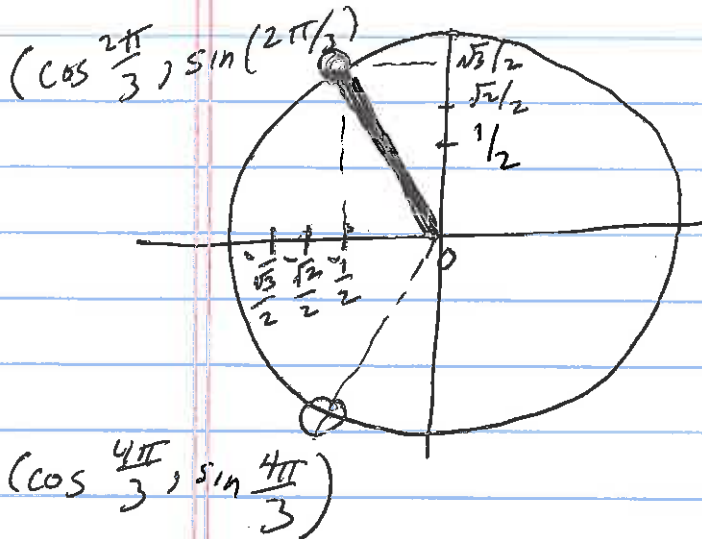 (cos 2π/3, sin(2π/3)
√3/2
√2/2
1/2
0
-√3/2 -√2/2 -1/2
(cos 4π/3, sin 4π/3)